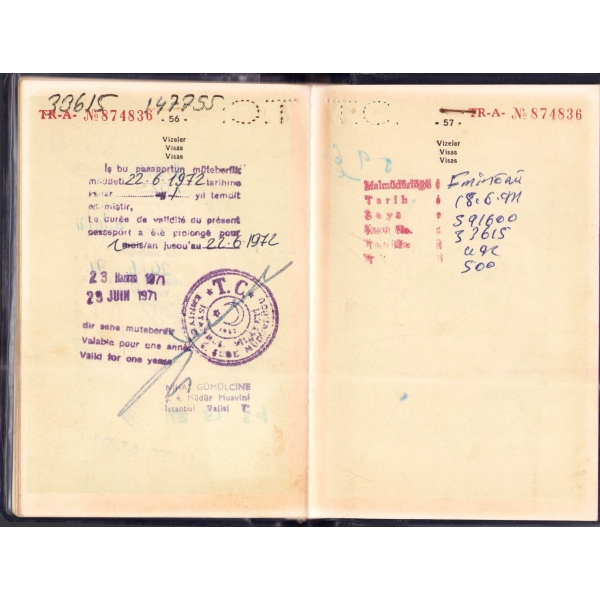 33615 147755
TR-A- № 874836 - 56 -
T.C.
Vizeler
Visas
Visas
İş bu pasaportun müteberlik
müddeti 22.6.1972 tarihine
kadar yıl temdit
edilmiştir.
La durée de validité du présent
passeport a été prolongé pour
1 mois/an jusqu'au 22.6.1972
23 Haziran 1971
23 JUIN 1971
T.C.
bir sene muteberdir
Valable pour une année
Valid for one years
NİHAT GÜMÜLCİNE
Ş. 4. Müdür Muavini
İstanbul Valisi Y.
TR-A- № 874836
- 57 -
Vizeler
Visas
Visas
Malmüdürlüğü : Eminönü
Tarih : 18.6.971
Sayı : 591600
No. : 33615
500